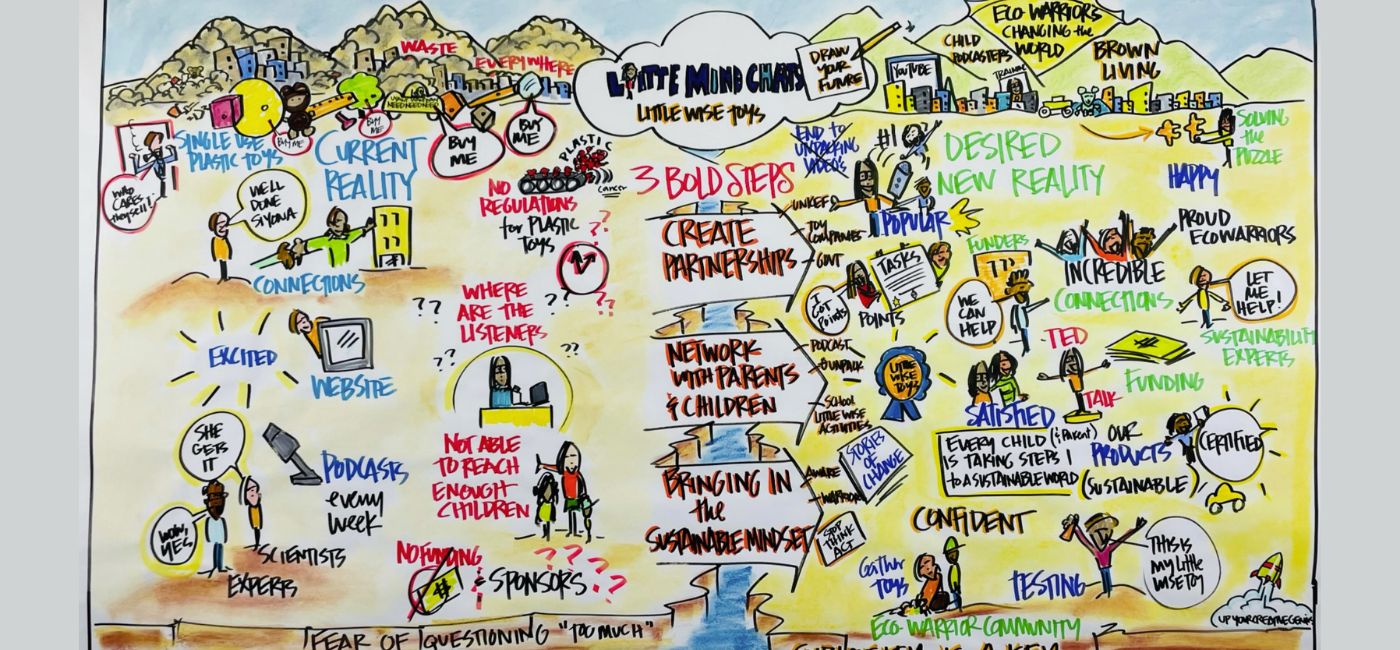 LITTLE MIND CHATS
LITTLE WISE TOYS
DRAW
YOUR
FUTURE
WASTE
EVERYWHERE
BUY
ME
BUY
ME
BUY ME
BUY
ME
SINGLE USE
PLASTIC TOYS
WHO
CARES
they sell!
CURRENT
REALITY
WELL
DONE
SIYONA
CONNECTIONS
PLASTIC
cancer
NO
REGULATIONS
for PLASTIC
TOYS
??
WHERE
ARE THE
LISTENERS
??
??
??
??
??
EXCITED
WEBSITE
SHE
GETS
IT
WOW,
YES
PODCASTS
every
week
SCIENTISTS
EXPERTS
NOT ABLE
TO REACH
ENOUGH
CHILDREN
NO FUNDING
SPONSORS
???
FEAR OF QUESTIONING "TOO MUCH"
3 BOLD STEPS
CREATE
PARTNERSHIPS
UNICEF
TOY
COMPANIES
GOVT
NETWORK
WITH PARENTS
& CHILDREN
PODCAST
UNPACK
SCHOOL
LITTLE WISE
ACTIVITIES
BRINGING IN
the
SUSTAINABLE MINDSET
AWARE
WARRIOR
STOP
THINK
ACT
STORIES
OF
CHANGE
ECO-WARRIORS
CHANGING the
WORLD
CHILD
PODCASTERS
YOUTUBE
TRAINING
BROWN
LIVING
END to
UNPACKING
VIDEO'S
#1
POPULAR
DESIRED
NEW REALITY
SOLVING
the
PUZZLE
HAPPY
TASKS
I
GOT
Points
POINTS
FUNDERS
WE
CAN
HELP
INCREDIBLE
CONNECTIONS
PROUD
ECOWARRIORS
LET
ME
HELP!
SUSTAINABILITY
EXPERTS
LITTLE
WISE
TOYS
TED
TALK
FUNDING
SATISFIED
EVERY CHILD (& Parent)
IS TAKING STEPS
to A SUSTAINABLE WORLD
OUR
PRODUCTS
(SUSTAINABLE)
CERTIFIED
CONFIDENT
Gather
TOYS
TESTING
THIS IS
MY Little
WISE TOY
ECO-WARRIOR COMMUNITY
UP YOUR CREATIVE GENIUS